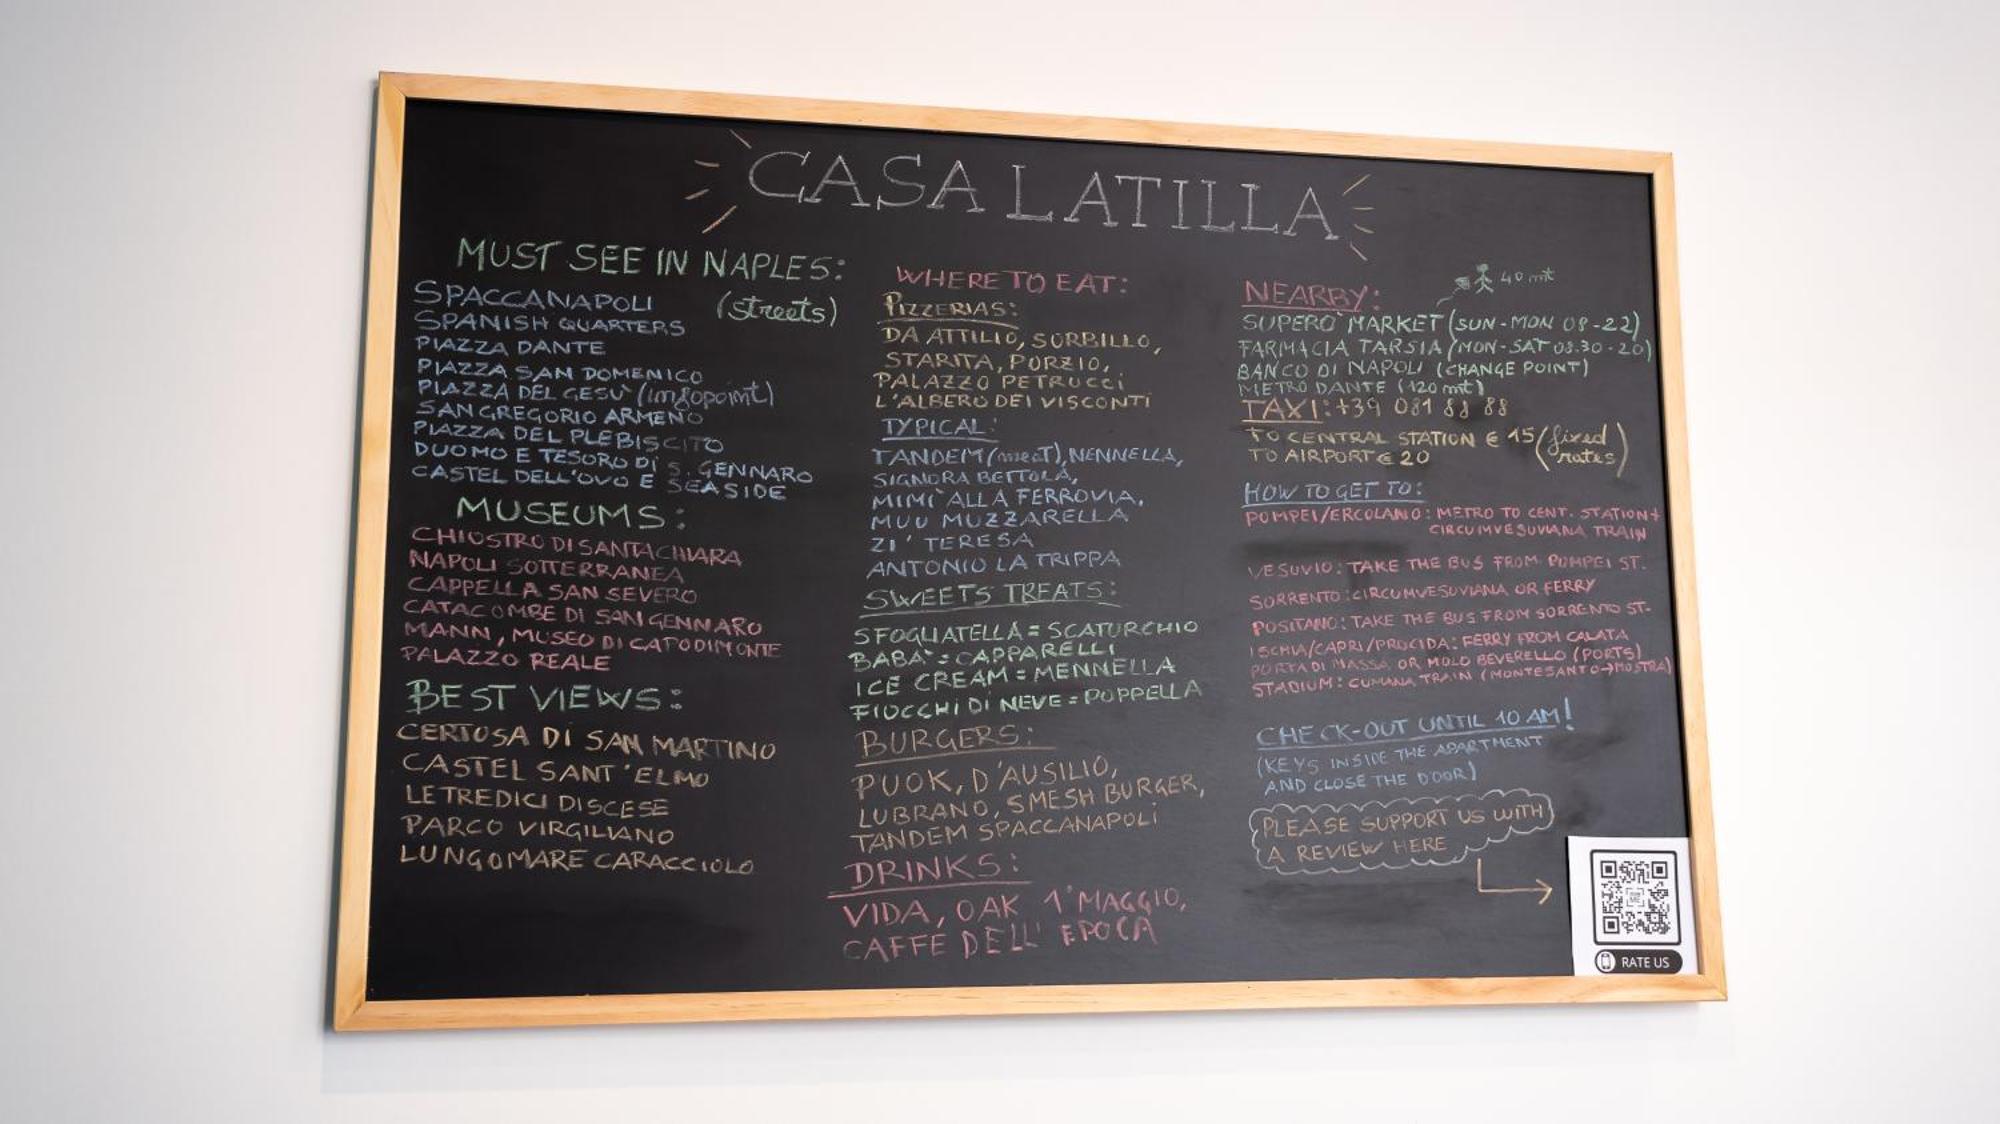 CASA LATILLA
MUST SEE IN NAPLES:
(streets)
SPACCANAPOLI
SPANISH QUARTERS
PIAZZA DANTE
PIAZZA SAN DOMENICO
PIAZZA DEL GESÙ (infopoint)
SAN GREGORIO ARMENO
PIAZZA DEL PLEBISCITO
DUOMO E TESORO DI S. GENNARO
CASTEL DELL'OVO E SEASIDE
MUSEUMS:
CHIOSTRO DI SANTA CHIARA
NAPOLI SOTTERRANEA
CAPPELLA SAN SEVERO
CATACOMBE DI SAN GENNARO
MANN, MUSEO DI CAPODIMONTE
PALAZZO REALE
BEST VIEWS:
CERTOSA DI SAN MARTINO
CASTEL SANT'ELMO
LE TREDICI DISCESE
PARCO VIRGILIANO
LUNGOMARE CARACCIOLO
WHERE TO EAT:
PIZZERIAS:
DA ATTILIO, SORBILLO,
STARITA, PORZIO,
PALAZZO PETRUCCI
L'ALBERO DEI VISCONTI
TYPICAL:
TANDEM (meat), NENNELLA,
SIGNORA BETTOLA,
MIMI' ALLA FERROVIA,
MUU MUZZARELLA
ZI' TERESA
ANTONIO LA TRIPPA
SWEETS TREATS:
SFOGLIATELLA = SCATURCHIO
BABA' = CAPPARELLI
ICE CREAM = MENNELLA
FIOCCHI DI NEVE = POPPELLA
BURGERS:
PUOK, D'AUSILIO,
LUBRANO, SMESH BURGER,
TANDEM SPACCANAPOLI
DRINKS:
VIDA, OAK 1° MAGGIO,
CAFFE DELL' EPOCA
40 mt
NEARBY:
SUPERO' MARKET (SUN-MON 08-22)
FARMACIA TARSIA (MON-SAT 08.30-20)
BANCO DI NAPOLI (CHANGE POINT)
METRO DANTE (120 mt)
TAXI: +39 081 88 88
TO CENTRAL STATION € 15 (fixed
TO AIRPORT € 20 rates)
HOW TO GET TO:
POMPEI/ERCOLANO: METRO TO CENT. STATION+
CIRCUMVESUVIANA TRAIN
VESUVIO: TAKE THE BUS FROM POMPEI ST.
SORRENTO: CIRCUMVESUVIANA OR FERRY
POSITANO: TAKE THE BUS FROM SORRENTO ST.
ISCHIA/CAPRI/PROCIDA: FERRY FROM CALATA
PORTA DI MASSA OR MOLO BEVERELLO (PORTS)
STADIUM: CUMANA TRAIN (MONTESANTO→MOSTRA)
CHECK-OUT UNTIL 10 AM!
(KEYS INSIDE THE APARTMENT
AND CLOSE THE DOOR)
PLEASE SUPPORT US WITH
A REVIEW HERE
RATE US